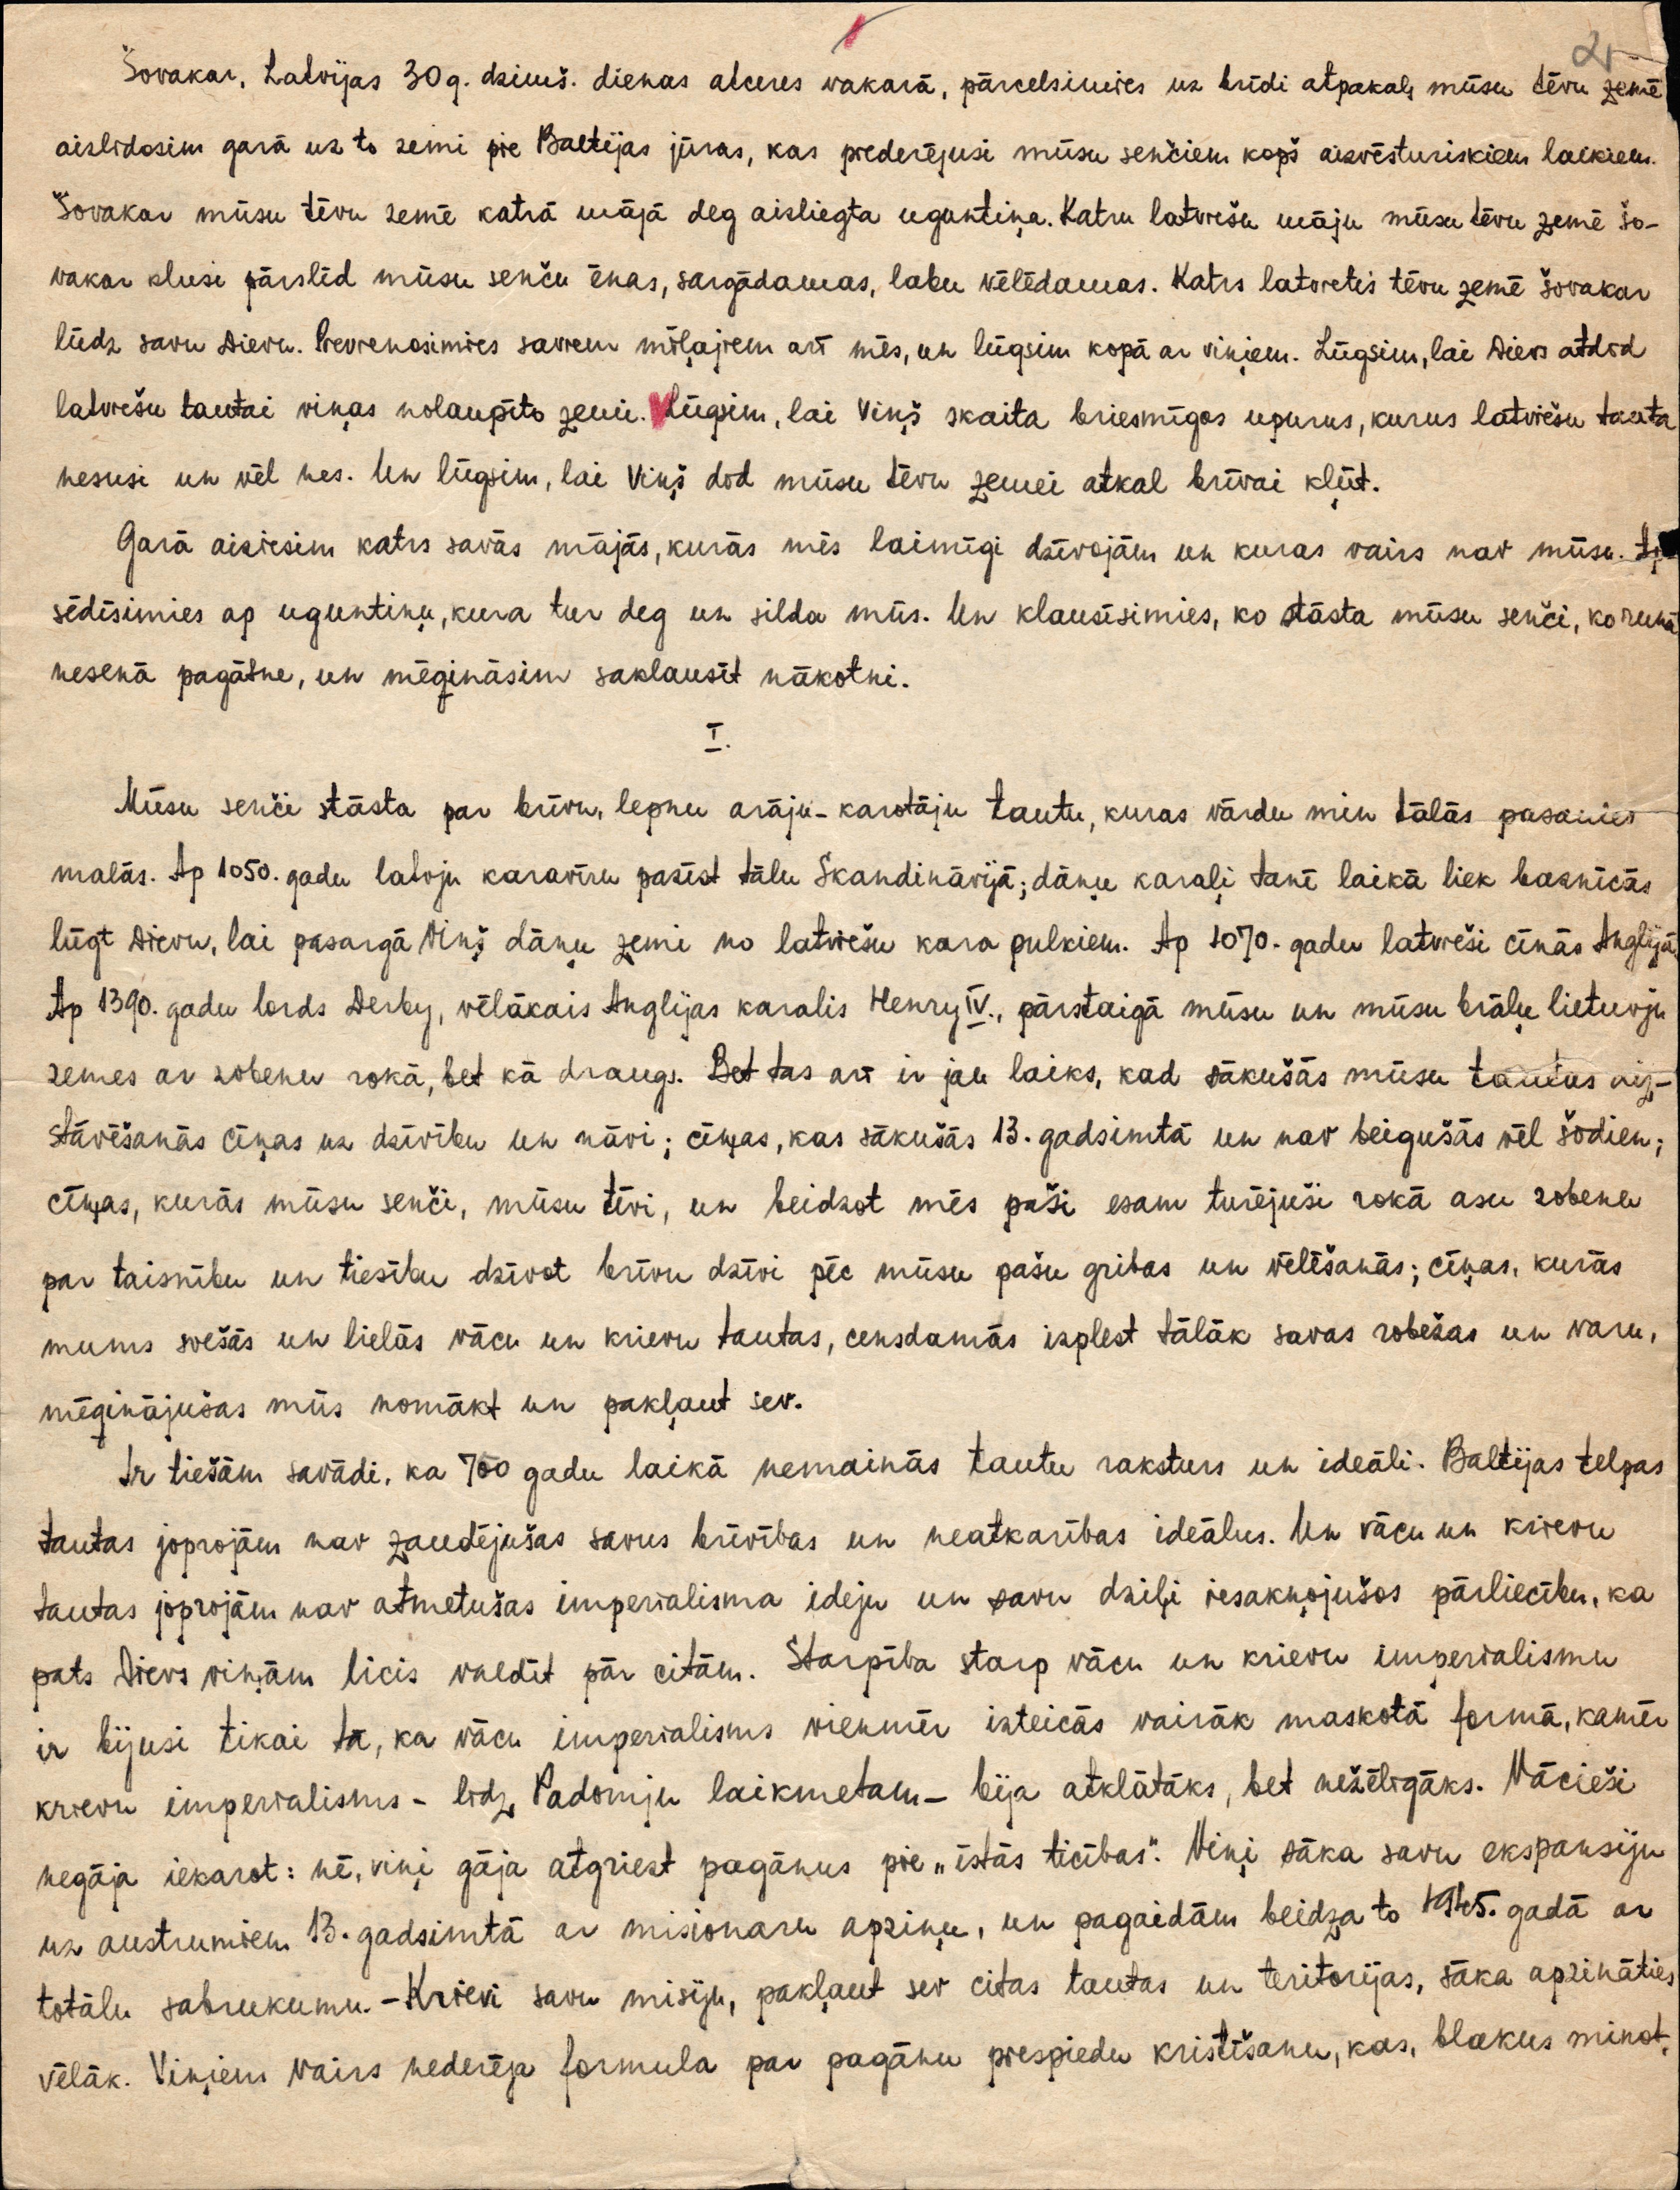 2.
Šovakar, Latvijas 30 g. dzimš. dienas atceres vakarā, pārcelsimies uz brīdi atpakaļ mūsu tēvu zemē
aizlidosim garā uz to zemi pie Baltijas jūras, kas piederējusi mūsu senčiem kopš aizvēsturiskiem laikiem.
Šovakar mūsu tēvu zemē katrā mājā deg aizliegta uguntiņa. Katru latviešu māju mūsu tēvu zemē šo-
vakar klusi pārslīd mūsu senču ēnas, sargādamas, labu vēlēdamas. Katrs latvietis tēvu zemē šovakar
lūdz savu Dievu. Pievienosimies saviem mīļajiem arī mēs, un lūgsim kopā ar viņiem. Lūgsim, lai Dievs atdod
latviešu tautai viņas nolaupīto zemi. Lūgsim, lai Viņš skaita briesmīgos upurus, kurus latviešu tauta
nesusi un vēl nes. Un lūgsim, lai Viņš dod mūsu tēvu zemei atkal brīvai kļūt.
Garā aiziesim katrs savās mājās, kurās mēs laimīgi dzīvojām un kuras vairs nav mūsu.
sēdīsimies ap uguntiņu, kura tur deg un silda mūs. Un klausīsimies, ko stāsta mūsu senči, ko runā
nesenā pagātne, un mēģināsim saklausīt nākotni.
I.
Mūsu senči stāsta par brīvu, lepnu arāju-karotāju tautu, kuras vārdu min tālās pasaules
malās. Ap 1050. gadu latvju karavīru pazīst tālu Skandināvijā; dāņu karaļi tanī laikā liek baznīcās
lūgt Dievu, lai pasargā Viņš dāņu zemi no latviešu kara pulkiem. Ap 1070. gadu latvieši cīnās Anglijā.
Ap 1390. gadu lords Derby, vēlākais Anglijas karalis Henry IV., pārstaigā mūsu un mūsu brāļu lietuvju
zemes ar zobenu rokā, bet kā draugs. Bet tas arī ir jau laiks, kad sākušās mūsu tautas aiz-
stāvēšanās cīņas uz dzīvību un nāvi; cīņas, kas sākušās 13. gadsimtā un nav beigušās vēl šodien;
cīņas, kurās mūsu senči, mūsu tēvi, un beidzot mēs paši esam turējuši rokā asu zobenu
par taisnību un tiesību dzīvot brīvu dzīvi pēc mūsu pašu gribas un vēlēšanās; cīņas, kurās
mums svešās un lielās vācu un krievu tautas, censdamās izplest tālāk savas robežas un varu,
mēģinājušas mūs nomākt un pakļaut sev.
Ir tiešām savādi, ka 700 gadu laikā nemainās tautu raksturs un ideāli. Baltijas telpas
tautas joprojām nav zaudējušas savus brīvības un neatkarības ideālus. Un vācu un krievu
tautas joprojām nav atmetušas imperialisma ideju un savu dziļi iesakņojušos pārliecību, ka
pats Dievs viņām licis valdīt pār citām. Starpība starp vācu un krievu imperialismu
ir bijusi tikai tā, ka vācu imperialisms vienmēr izteicās vairāk maskotā formā, kamēr
krievu imperialisms - līdz Padomju laikmetam - bija atklātāks, bet nežēlīgāks. Vācieši
negāja iekarot: nē, viņi gāja atgriest pagānus pie „īstās ticības". Viņi sāka savu ekspansiju
uz austrumiem 13. gadsimtā ar misionaru apziņu, un pagaidām beidza to 1945. gadā ar
totālu sabrukumu. - Krievi savu misiju, pakļaut sev citas tautas un teritorijas, sāka apzināties
vēlāk. Viņiem vairs nederēja formula par pagānu piespiedu kristīšanu, kas, blakus minot,